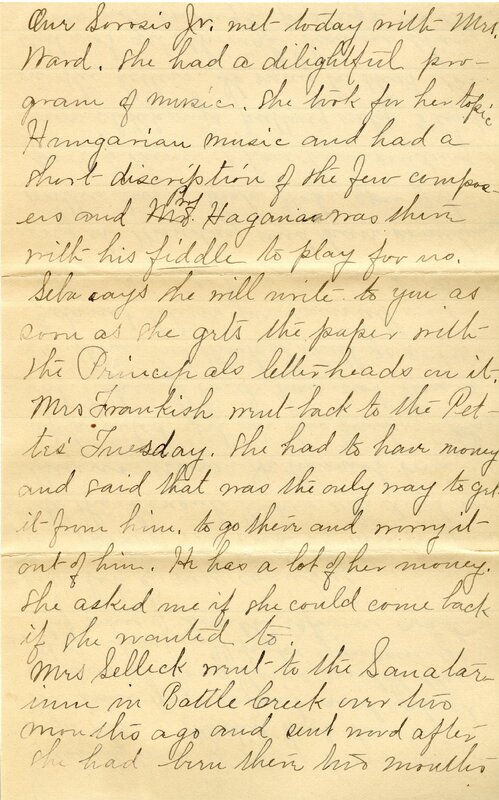 Our Sorosis Jr. met today with Mrs.
Ward. She had a dilightful pro-
gram of music. She took for her topic
Hungarian music and had a
short discription of the few compos-
ers and Prof. Haganian was there
with his fiddle to play for us.
Seba says she will write to you as
soon as she gets the paper with
the Principals letterheads on it.
Mrs Frankish went back to the Pet-
tes' Tuesday. She had to have money
and said that was the only way to get
it from him, to go there and worry it
out of him. He has a lot of her money.
She asked me if she could come back
if she wanted to.
Mrs Selleck went to the Sanatar-
ium in Battle Creek over two
months ago and sent word after
she had been there two months